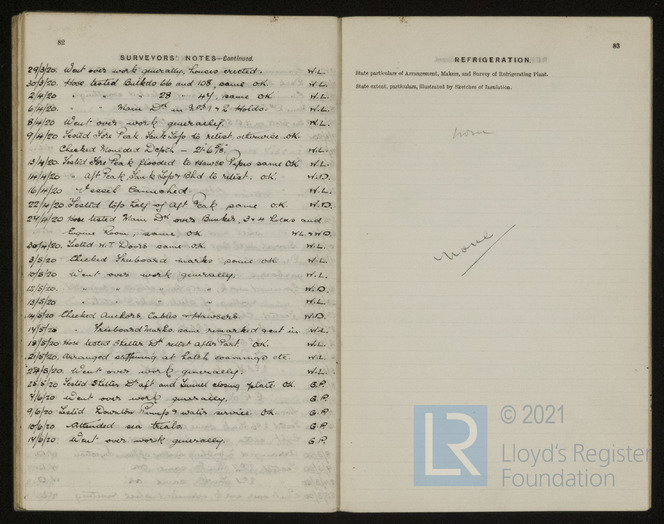 82
SURVEYORS' NOTES—Continued.
29/3/20. Went over work generally, houses erected. W.L.
30/3/20. Hose tested Bulkds 66 and 108, same OK. W.L.
2/4/20. " " " 28 " 44, same OK W.L.
6/4/20. " " Main Dk in Nos 1 & 2 Holds. W.L.
8/4/20 Went over work generally W.L.
9/4/20 Tested Fore Peak Tank Top to retest otherwise OK
Checked Moulded Depth W.L.
13/4/20. Tested Fore Peak flooded to Hawse Pipes same OK W.L.
14/4/20 " Aft Peak, Tank Top & Bhd to retest. OK. W.D.
16/4/20 Vessel Launched. W.L.
22/4/20 Tested top half of Aft Peak same OK. W.D.
27/4/20 Hose tested Main Dk over Bunker, 3 & 4 Holds and
Engine Room, same OK W.L. & W.D.
30/4/20. Tested W.T. Doors same OK. W.L.
3/5/20 Checked Freeboard marks same OK. W.L.
10/5/20 Went over work generally. W.L.
12/5/20. " " " " W.D.
13/5/20 " " " " W.L.
14/5/20 Checked Anchors, Cables & Hawsers. W.D.
17/5/20 " Freeboard Marks, same remarked sent in W.L.
19/5/20 Hose tested Shelter Dk retest after Part OK. W.L.
21/5/20. Arranged stiffening at hatch coamings etc. W.L.
27/5/20. Went over work generally W.L.
Tested Shelter Dk aft and Tunnel closing plate OK G.P.
7/6/20 Went over work generally. G.P.
9/6/20 Tested Downton Pumps & water service OK G.P.
10/6/20 Attended sea trials. G.P.
14/6/20. Went over work generally. G.P.
83
REFRIGERATION.
State particulars of Arrangement, Makers, and Survey of Refrigerating Plant.
State extent, particulars, illustrated by Sketches of Insulation.
None
None
LR
© 2021
Lloyd's Register
Foundation